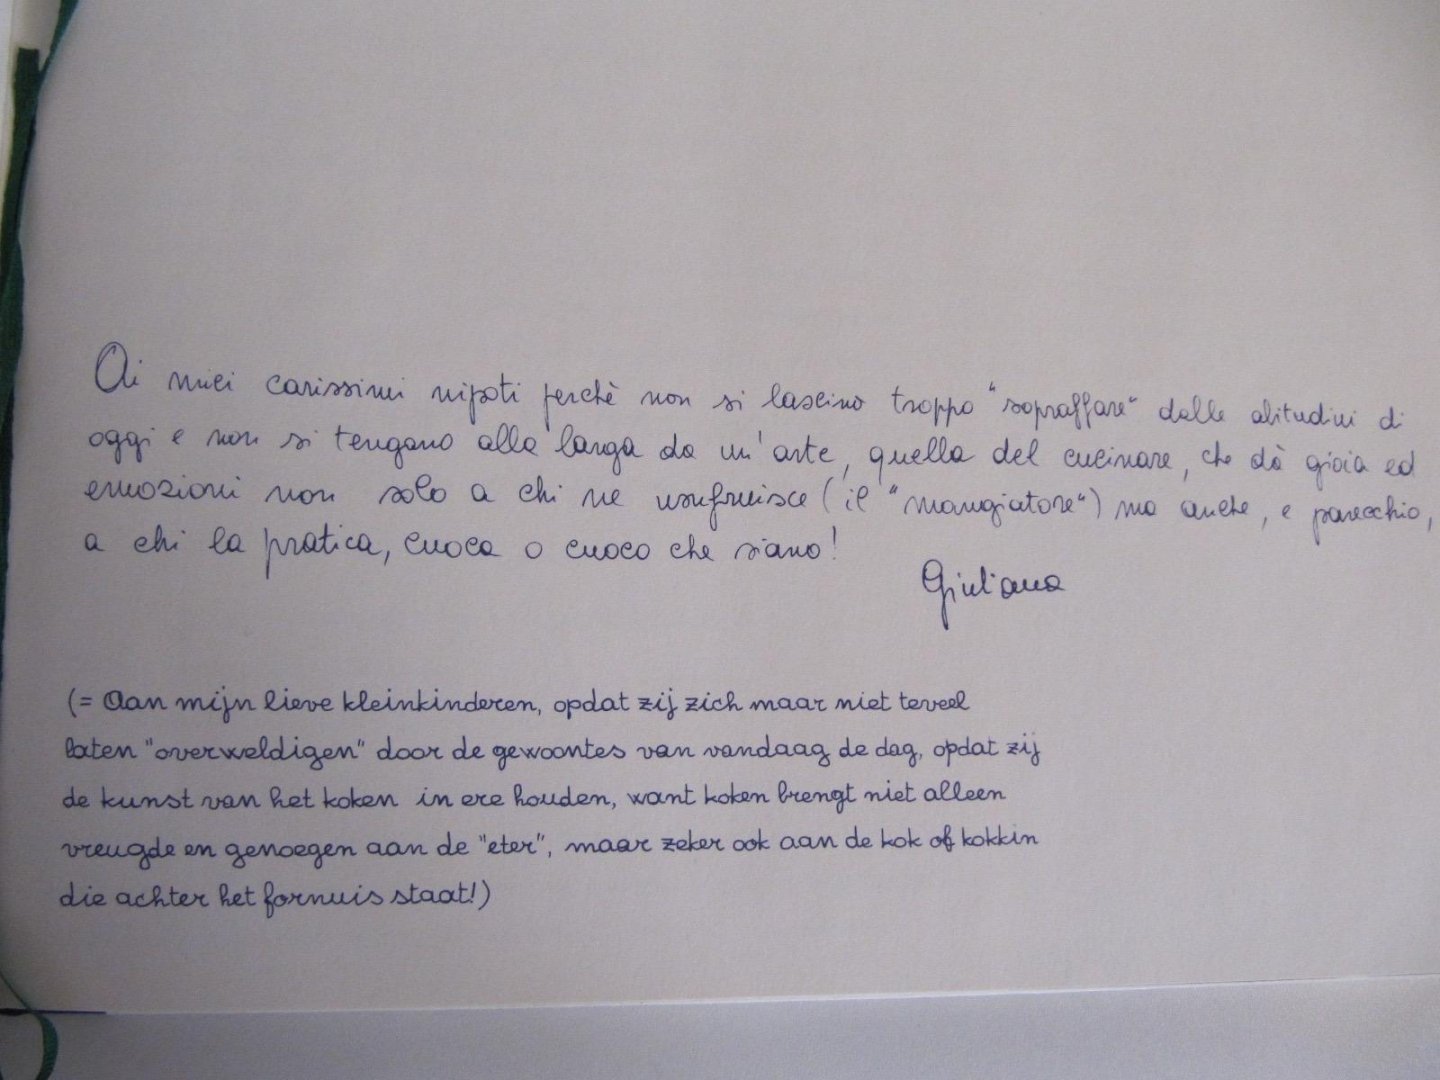 Ai miei carissimi nipoti perchè non si lascino troppo "sopraffare" dalle abitudini di
oggi e non si tengano alla larga da un'arte, quella del cucinare, che dà gioia ed
emozioni non solo a chi ne usufruisce (il "mangiatore") ma anche, e parecchio,
a chi la pratica, cuoca o cuoco che siano!
Giuliana
(= Aan mijn lieve kleinkinderen, opdat zij zich maar niet teveel
laten "overweldigen" door de gewoontes van vandaag de dag, opdat zij
de kunst van het koken in ere houden, want koken brengt niet alleen
vreugde en genoegen aan de "eter", maar zeker ook aan de kok of kokkin
die achter het fornuis staat!)